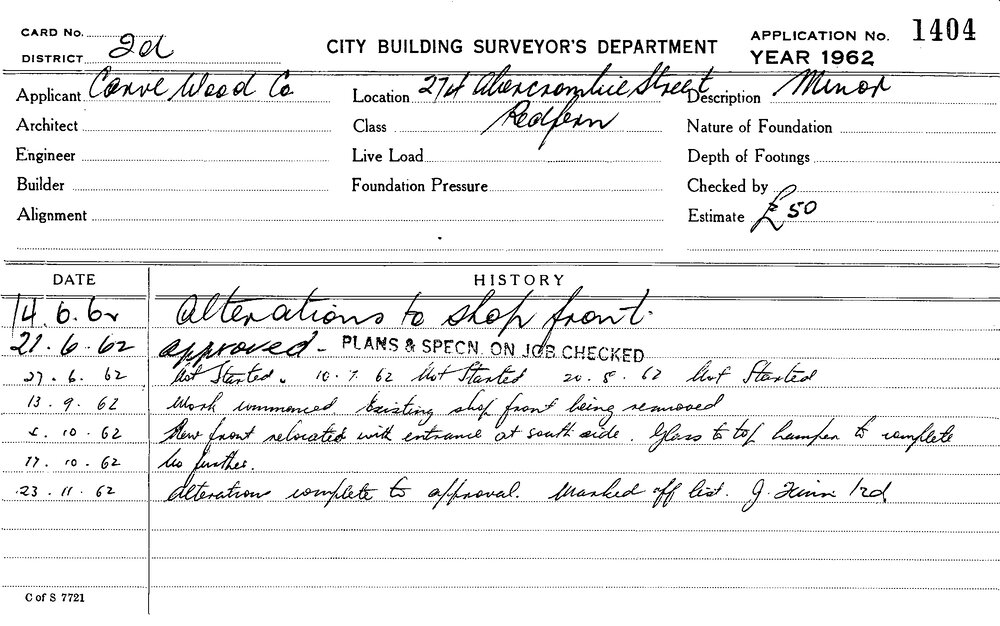 CARD No.
CITY BUILDING SURVEYOR'S DEPARTMENT
APPLICATION No. 1404
DISTRICT 2d
YEAR 1962
Applicant Carve Wood Co
Location 274 Abercrombie Street
Redfern
Description Minor
Architect
Class
Nature of Foundation
Engineer
Live Load
Depth of Footings
Builder
Foundation Pressure
Checked by
Alignment
Estimate £50
DATE HISTORY
14.6.62 Alterations to shop front.
21.6.62 approved - PLANS & SPECN. ON JOB CHECKED
27.6.62 Not Started. 10.7.62 Not Started 20.8.62 Not Started
13.9.62 Work commenced Existing shop front being removed
.10.62 New front relocated with entrance at south side. Glass to top hamper to complete
17.10.62 No further.
23.11.62 Alterations complete to approval. Marked off list. J.
C of S 7721